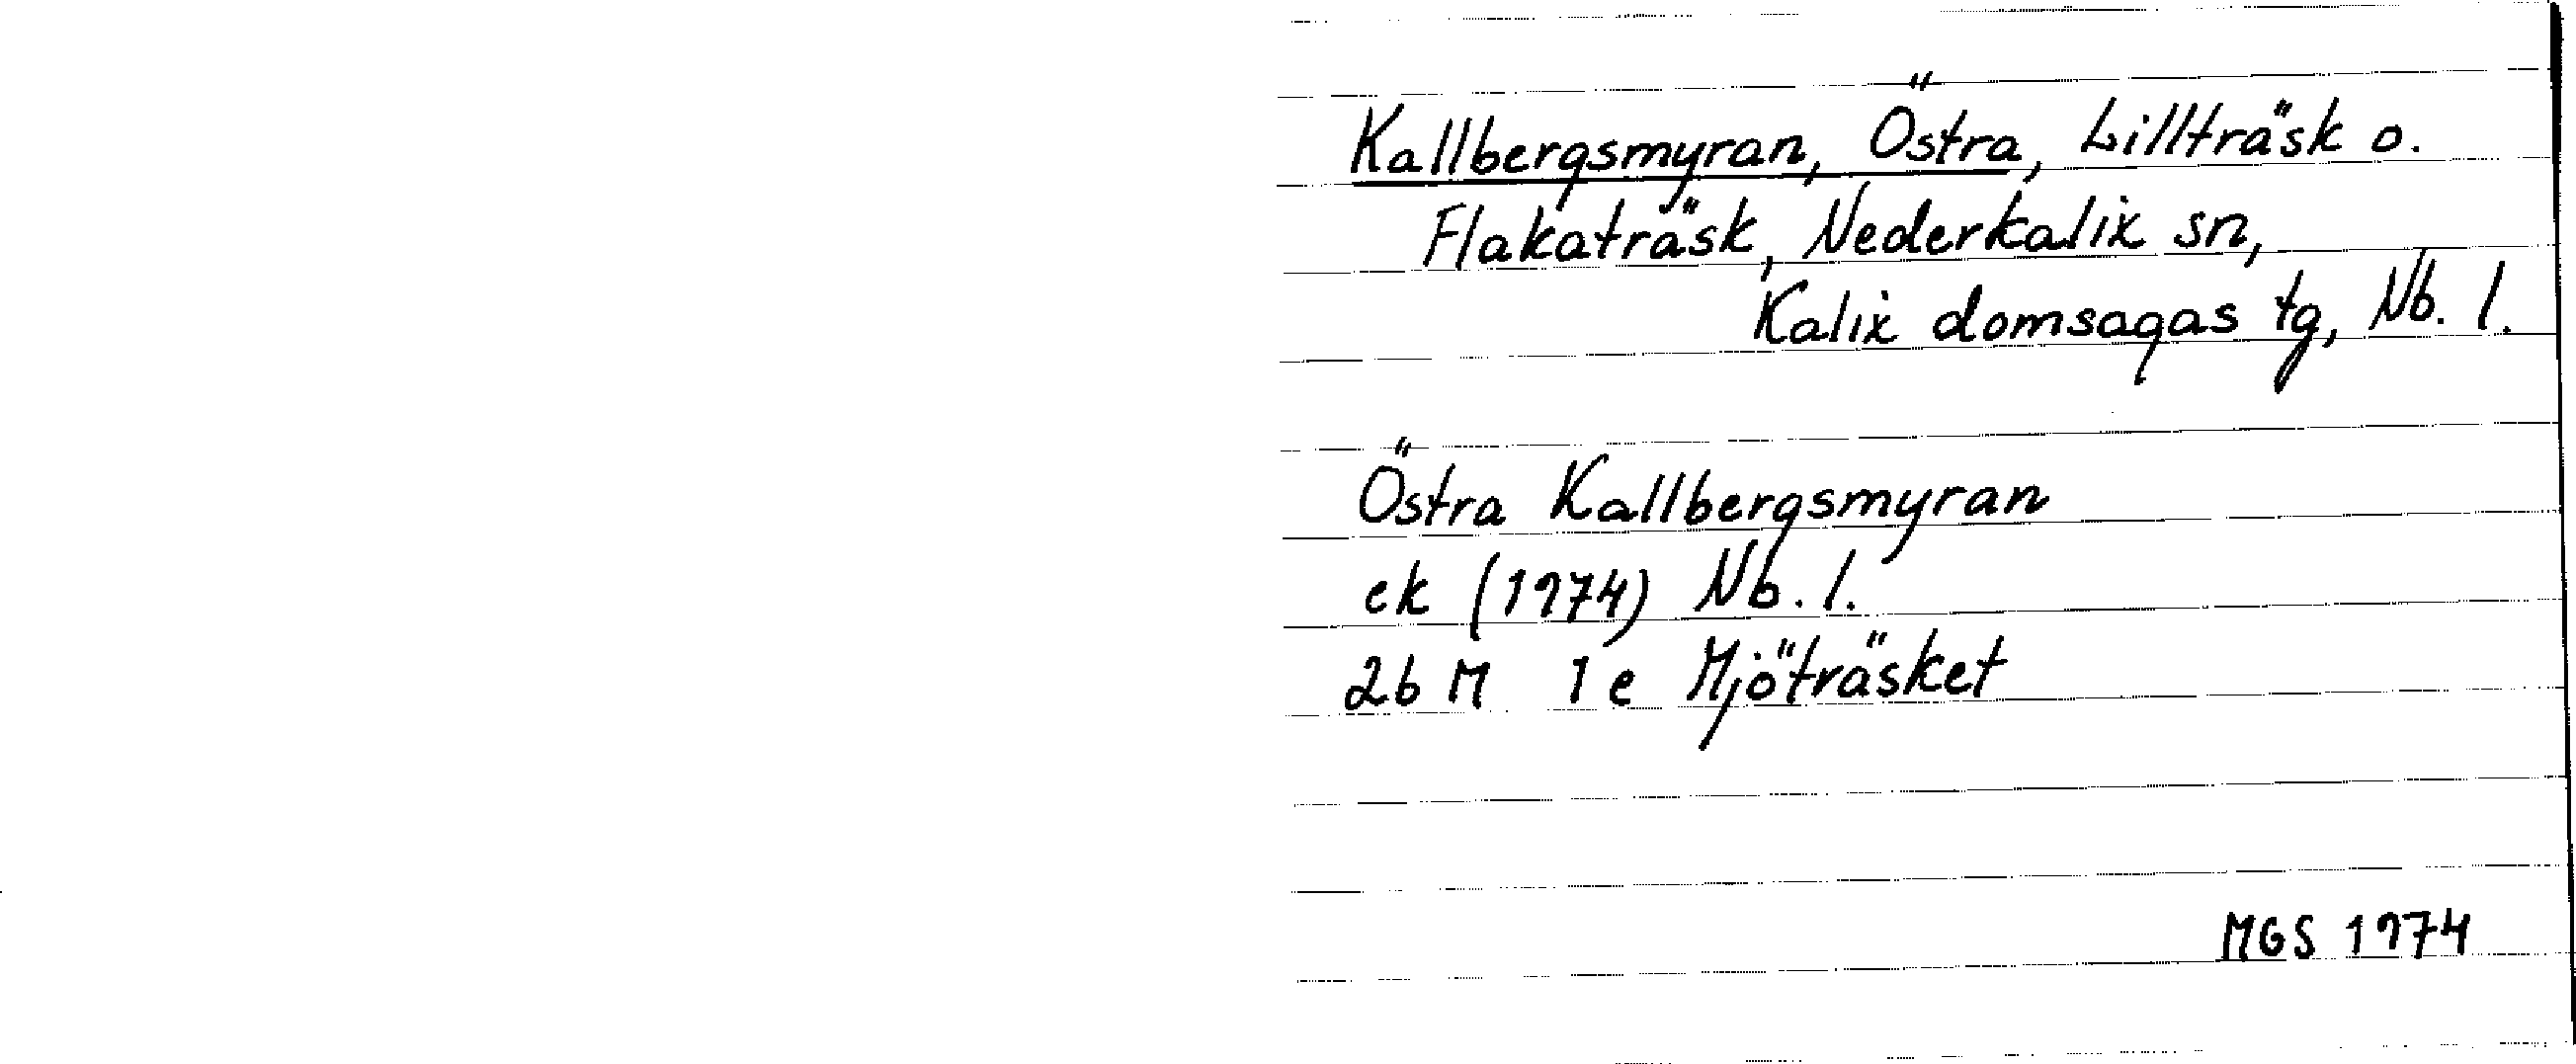 Kallbergsmyran, Östra, Lillträsk o.
Flakaträsk, Nederkalix sn,
Kalix domsagas tg, Nb. l.
Östra Kallbergsmyran
ek (1974) Nb. l.
26 M 1 e Mjöträsket
MGS 1974